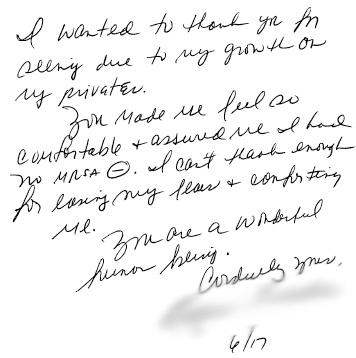 I wanted to thank you for
seeing due to my growth on
my privates.
You made me feel so
comfortable + assured me I had
no MRSA ⊖. I can't thank enough
for easing my fears + comforting
me.
You are a wonderful
human being.
Cordially yours,
6/17